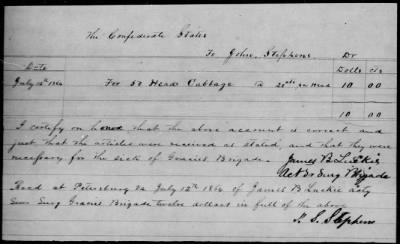 The Confederate States
To John Stephens Dr
Date Dolls Cts
July 12th 1864 For 50 Head Cabbage @ 20cts pr Head 10 00
10 00
I certify on honor that the above account is correct and
just that the articles were received as stated, and that they were
necessary for the sick of Gracies Brigade.
James B. Luckie
Act Sr Surg Brigade
Recd at Petersburg Va July 12th 1864 of James B Luckie Actg
Senr Surg Gracies Brigade twelve dollars in full of the above
J. S. Stephens